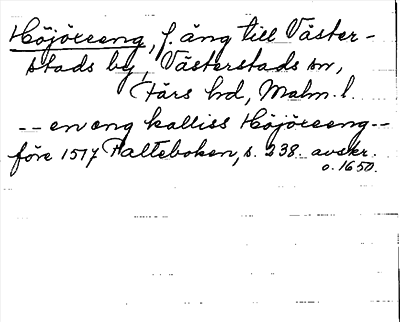 Höjöreeng, f. äng till Väster-
stads by, Västerstads sn,
Färs hd, Malm. l.
-- en eng kalliss Höjöreeng --
före 1517 Palteboken, s. 238. avskr.
o. 1650.